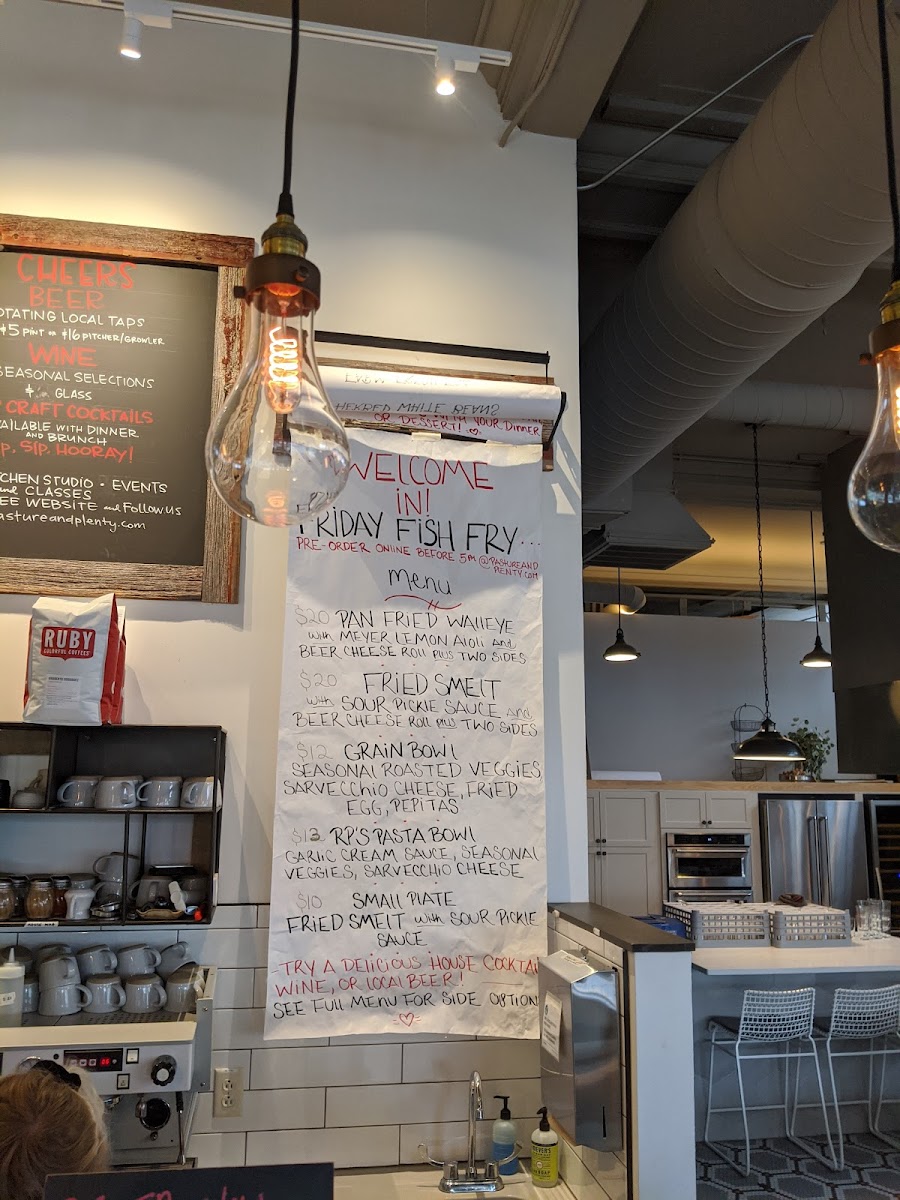 CHEERS
BEER
OTATING LOCAL TAPS
$5 PINT OR $16 PITCHER/GROWLER
WINE
SEASONAL SELECTIONS
GLASS
CRAFT COCKTAILS
AILABLE WITH DINNER
AND BRUNCH
P, SIP, HOORAY!
TCHEN STUDIO • EVENTS
and CLASSES
EE WEBSITE and FOLLOW US
pastureandplenty.com
WHITE BEANS
WITH YOUR DINNER
OR DESSERT!
WELCOME
iN!
FRIDAY FISH FRY...
PRE-ORDER ONLINE BEFORE 5PM @PASTUREAND
PLENTY.COM
menu
$20 PAN FRIED WALLEYE
with MEYER LEMON AIOLI and
BEER CHEESE ROLL PLUS TWO SIDES
$20 FRIED SMELT
with SOUR PICKIE SAUCE and
BEER CHEESE ROLL PLUS TWO SIDES
$12 GRAIN BOWL
SEASONAL ROASTED VEGGIES,
SARVECCHIO CHEESE, FRIED
EGG, PEPITAS
$13 RP'S PASTA BOWL
GARLIC CREAM SAUCE, SEASONAL
VEGGIES, SARVECCHIO CHEESE
$10 SMALL PLATE
FRIED SMELT with SOUR PICKIE
SAUCE
TRY A DELICIOUS HOUSE COCKTAI
WINE, OR LOCAL BEER!
SEE FULL MENU FOR SIDE OPTION
RUBY
COLORFUL COFFEES